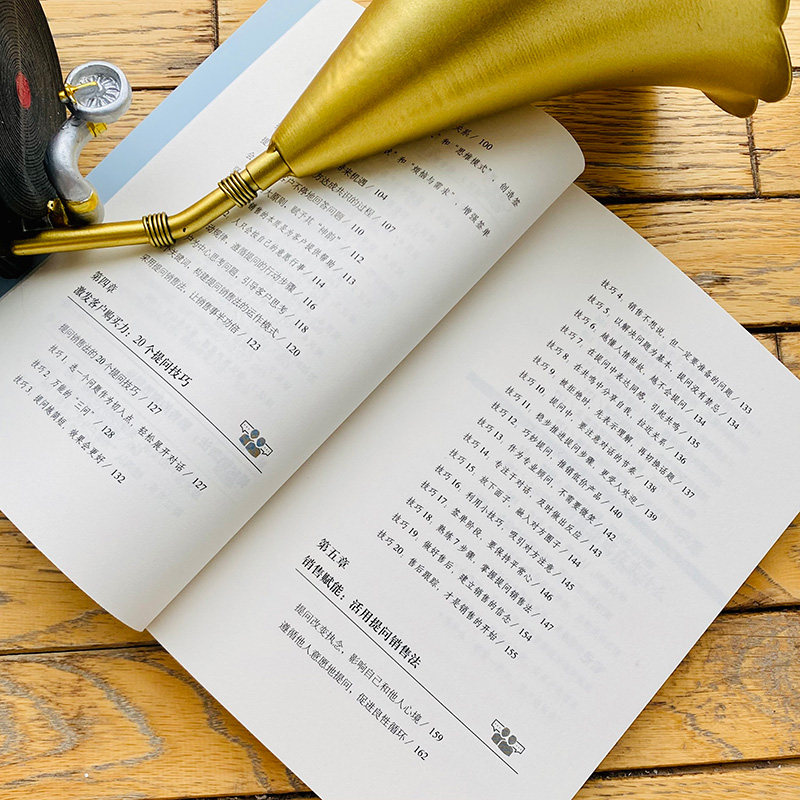 关系 / 100
和“思维模式”，创造签
和“烦恼与需求”，增强签单
来机遇 / 104
达成共识的过程 / 107
客户不停地回答问题 / 110
原则，赋予其“神韵” / 112
销售的本质是为客户提供帮助 / 113
人只会按自己的意愿行事 / 114
规律，遵循提问的行动步骤 / 116
为中心思考问题，引导客户思考 / 118
关键词，构建提问销售法的运作模式 / 120
采用提问销售法，让销售事半功倍 / 123
第四章
激发客户购买力：20个提问技巧
提问销售法的20个提问技巧 / 127
技巧1，选一个问题作为切入点，轻松展开对话 / 127
技巧2，万能的“三问” / 128
技巧3，提问越简短，效果会更好 / 132
技巧4，销售不想说，但一定要准备的问题 / 133
技巧5，以解决问题为基本，提问没有禁忌 / 134
技巧6，越懂人情世故，越不会提问 / 134
技巧7，在提问中表达同感，引起共鸣 / 135
技巧8，在共鸣中分享自我，拉近关系 / 136
技巧9，被拒绝时，先表示理解，再切换话题 / 137
技巧10，提问中，要注意对话的节奏 / 138
技巧11，稳步推进提问步骤，更受人欢迎 / 139
技巧12，巧妙提问，推销低价产品 / 140
技巧13，作为专业顾问，不需要微笑 / 142
技巧14，专注于对话，及时做出反应 / 143
技巧15，放下面子，融入对方圈子 / 144
技巧16，利用小技巧，吸引对方注意 / 145
技巧17，签单阶段，要保持平常心 / 146
技巧18，熟练7步骤，掌握提问销售法 / 147
技巧19，做好售后，建立销售的信念 / 154
技巧20，售后跟踪，才是销售的开始 / 155
第五章
销售赋能：活用提问销售法
提问改变执念，影响自己和他人心境 / 159
遵循他人意愿地提问，促进良性循环 / 162